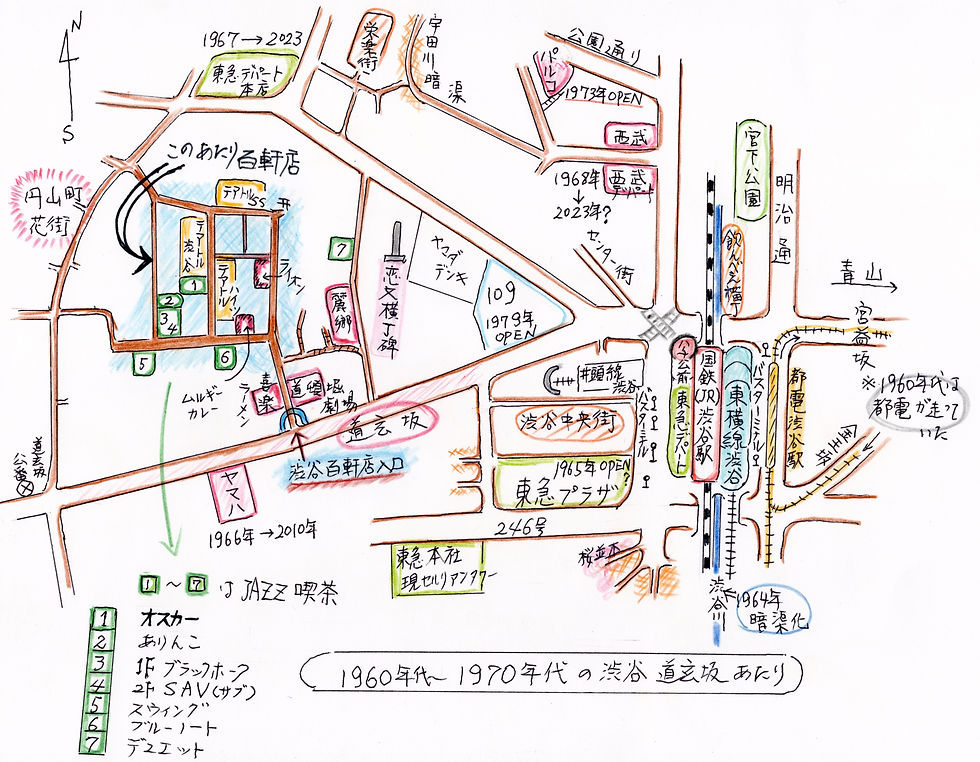 N
S
1967→2023
東急デパート
本店
栄楽街
宇田川暗渠
公園通り
パルコ
1973年OPEN
西武
1968年
↓
2023年?
西武
デパート
宮下公園
明治通
飲んべえ横丁
青山
宮益坂
※1960年代は
都電が走って
いた
このあたり百軒店
円山町
花街
テアトルSS
テアトル
渋谷
テアトル
ハイツ
ライオン
1
2
3
4
5
6
7
麗郷
恋文横丁碑
ヤマダ
デンキ
109
1979年
OPEN
センター街
ハチ公前
東急デパート
国鉄(JR)渋谷駅
東横線渋谷
バスターミナル
都電渋谷駅
井頭線
渋谷
バスターミナル
渋谷中央街
1965年OPEN
?
東急プラザ
ムルギー
カレー
喜楽
ラーメン
道頓堀
劇場
道玄坂
渋谷百軒店入口
道玄坂
ヤマハ
1966年→2010年
246号
東急本社
現セルリアンタワー
桜並木
渋谷川
1964年
暗渠化
1~7はJAZZ喫茶
1 オスカー
2 ありんこ
3 1Fブラックホーク
4 2F SAV(サブ)
5 スウィング
6 ブルーノート
7 デュエット
1960年代~1970年代の渋谷道玄坂あたり